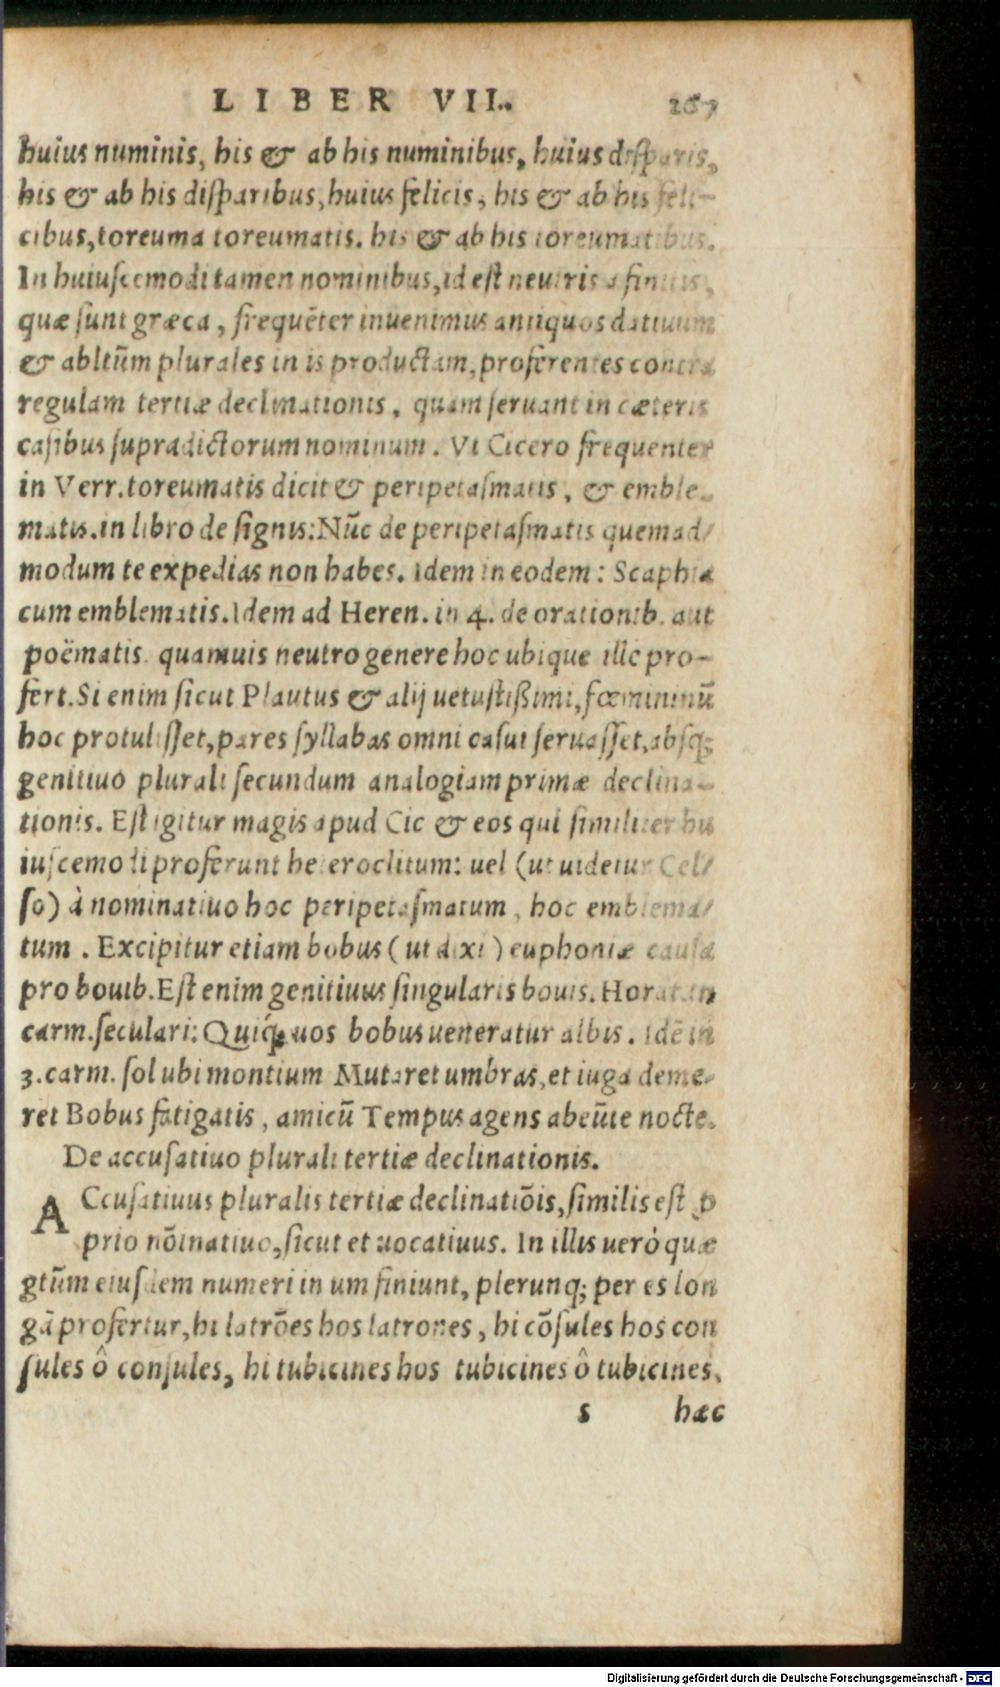 LIBER VII.
huius numinis, his & ab his numinibus, huius disparis,
his & ab his disparibus, huius felicis, his & ab his feli-
cibus, toreuma toreumatis. his & ab his toreumatibus.
In huiuscemodi tamen nominibus, id est neutris a finitis,
quæ sunt græca, frequēter inuenimus antiquos datiuum
& abltiūm plurales in is productam, proferentes contra
regulam tertiæ declinationis, quam seruant in cæteris
casibus supradictorum nominum. Vt Cicero frequenter
in Verr. toreumatis dicit & peripetasmatis, & emble-
matis. in libro de signis: Nūc de peripetasmatis quemad/
modum te expedias non habes. Idem in eodem: Scaphia
cum emblematis. Idem ad Heren. in 4. de orationib. aut
poëmatis. quamuis neutro genere hoc ubique illic pro-
fert. Si enim sicut Plautus & alij uetustißimi, fœmininū
hoc protulisset, pares syllabas omni casui seruasset, absq;
genitiuo plurali secundum analogiam primæ declina-
tionis. Est igitur magis apud Cic & eos qui similiter hu
iuscemodi proferunt heteroclitum: uel (ut uidetur Cel/
so) à nominatiuo hoc peripetasmatum, hoc emblema/
tum. Excipitur etiam bobus (ut dixi) euphoniæ causa
pro bouib. Est enim genitiuus singularis bouis. Horat. in
carm. seculari: Quiq́; uos bobus ueneratur albis. Idē in
3. carm. sol ubi montium Mutaret umbras, et iuga deme-
ret Bobus fatigatis, amicū Tempus agens abeūte nocte.
De accusatiuo plurali tertiæ declinationis.
ACcusatiuus pluralis tertiæ declinatiōis, similis est ꝓ
prio nōinatiuo, sicut et uocatiuus. In illis uerò quæ
gtūm eiusdem numeri in um finiunt, plerunq; per es lon
gā profertur, hi latrōes hos latrones, hi cōsules hos con
sules ô consules, hi tubicines hos tubicines ô tubicines,
s hæc
Digitalisierung gefördert durch die Deutsche Forschungsgemeinschaft - DFG